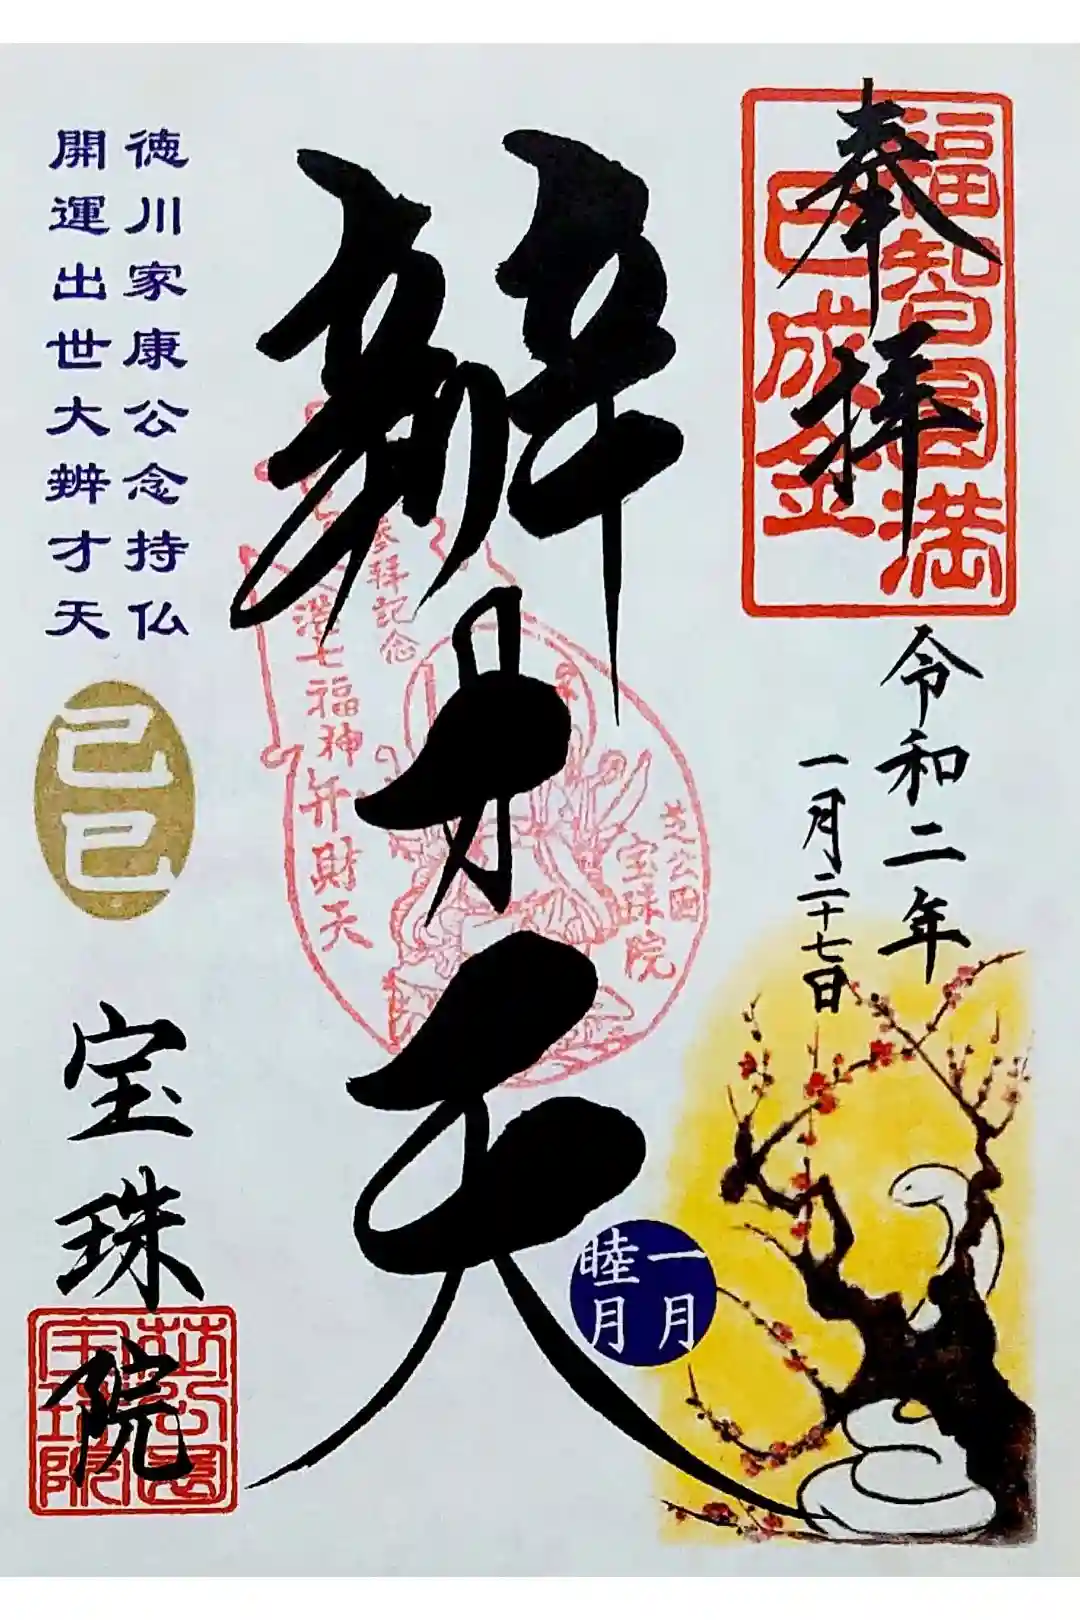 奉拝
福智円満
巳成金
令和二年
一月二十七日
辨才天
参拝記念
港七福神
弁財天
芝公園
宝珠院
一月
睦月
徳川家康公念持仏
開運出世大辨才天
己巳
宝珠院
芝公園
宝珠院